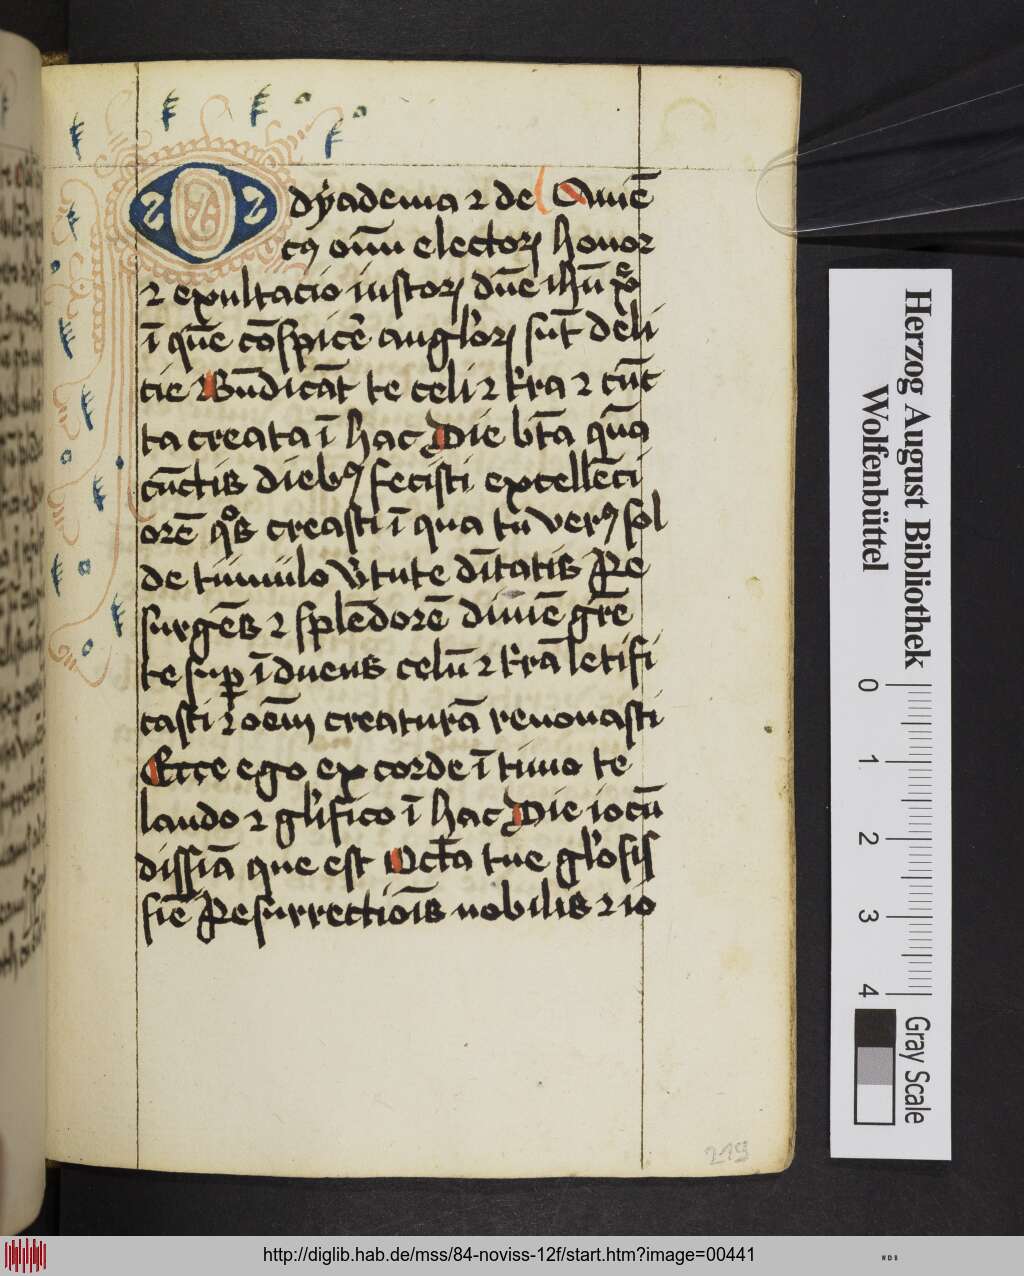 O dÿadema ⁊ de Sṁe
cꝰ om̄ū electoꝝ honor
⁊ exultacio iustoꝝ dn̄e ih̄u xp̄e
ī quē cōspicē angl'oꝝ sūt deli
cie Bn̄dicāt te celi ⁊ t'ra ⁊ cūc
ta creata ī hac Die btā quā
cūctis diebꝰ fecisti excellēci
orē q°s creasti ī qua tu verꝰ sol
de tumulo v'tute dītatis Re
surgēs ⁊ splēdorē diuīe gr̄e
te suꝑ īduens celū ⁊ t'rā letifi
casti ⁊ oēm creaturā renouasti
Ecce ego ex corde ītimo te
laudo ⁊ gl'ifico ī hac Die iocū
dissīa que est Octā tue gl'osis
sīe Resurrectiōis nobilis ⁊ io
219
Herzog August Bibliothek
Wolfenbüttel
0 1 2 3 4
Gray Scale
http://diglib.hab.de/mss/84-noviss-12f/start.htm?image=00441